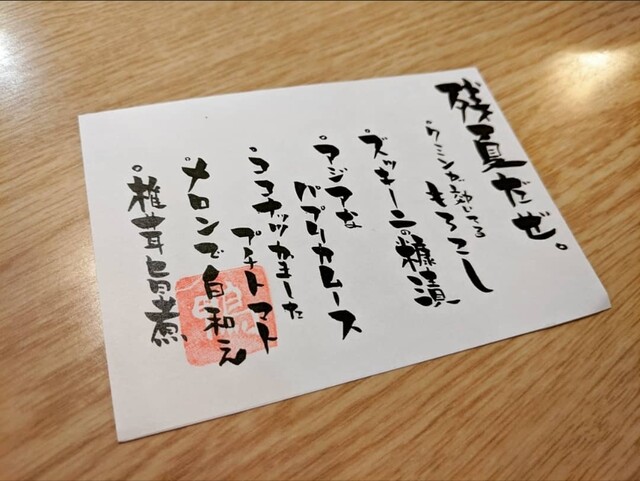 残夏だぜ。
°クミンが効いてる
もろこし
°ズッキーニの糠漬
°アジアな
パプリカムース
°ココナッツかました
プチトマト
°メロンで白和え
°椎茸旨煮